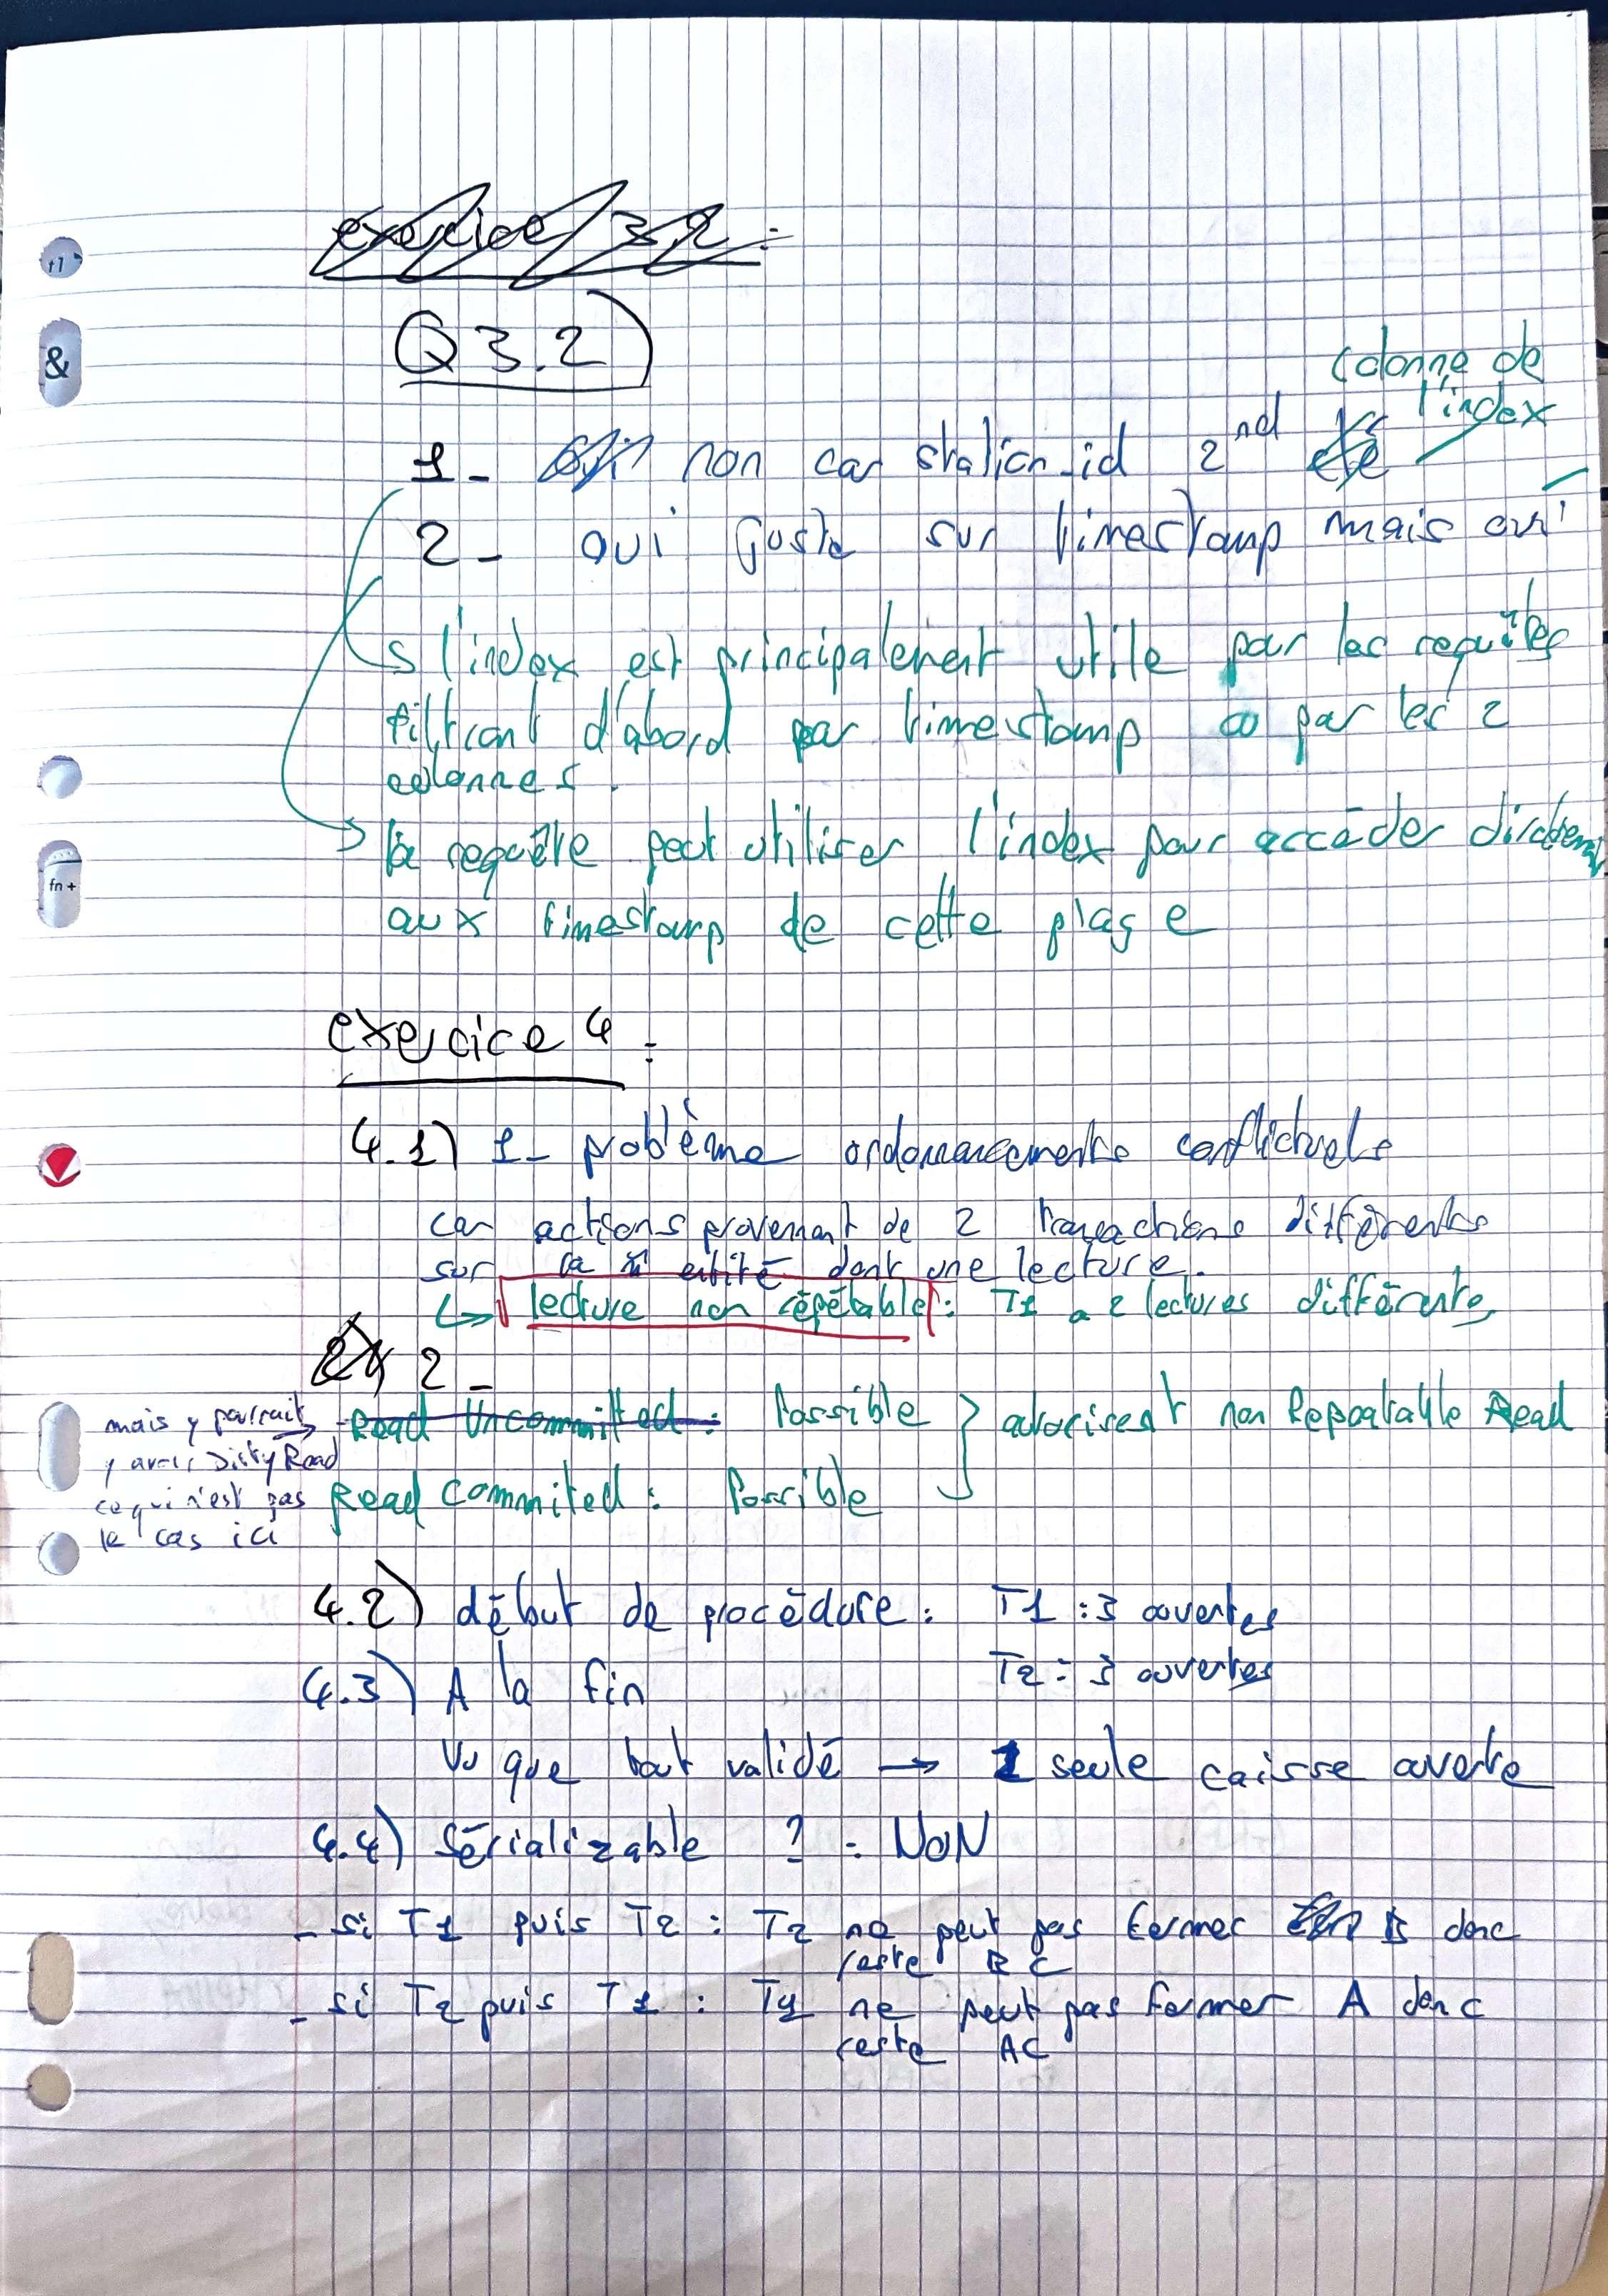 exercice 3.2 :
Q 3.2)
colonne de
l'index
1 - non car station_id 2nd
2 - oui juste sur timestamp mais oui
↳ l'index est principalement utile pour les requêtes
filtrant d'abord par timestamp ou par les 2
colonnes.
→ la requête peut utiliser l'index pour accéder directement
aux timestamp de cette plage
exercice 4 :
4.1) 1 - problème ordonnancements conflictuels
car actions provenant de 2 transactions différentes
sur la m̂ entité dont une lecture.
↳ lecture non répétable : T1 a 2 lectures différentes
ex 2 -
mais y pourrait →
y avoir Dirty Read
ce qui n'est pas
le cas ici
- Read Uncommitted : Possible } autorisent non Repeatable Read
Read Commited : Possible
4.2) début de procédure : T1 : 3 ouvertes
T2 : 3 ouvertes
4.3) A la fin
Vu que tout validé → 1 seule caisse ouverte
4.4) Sérializable ? : NON
- si T1 puis T2 : T2 ne peut pas fermer B donc
reste B C
- si T2 puis T1 : T1 ne peut pas fermer A donc
reste AC
&
fn +